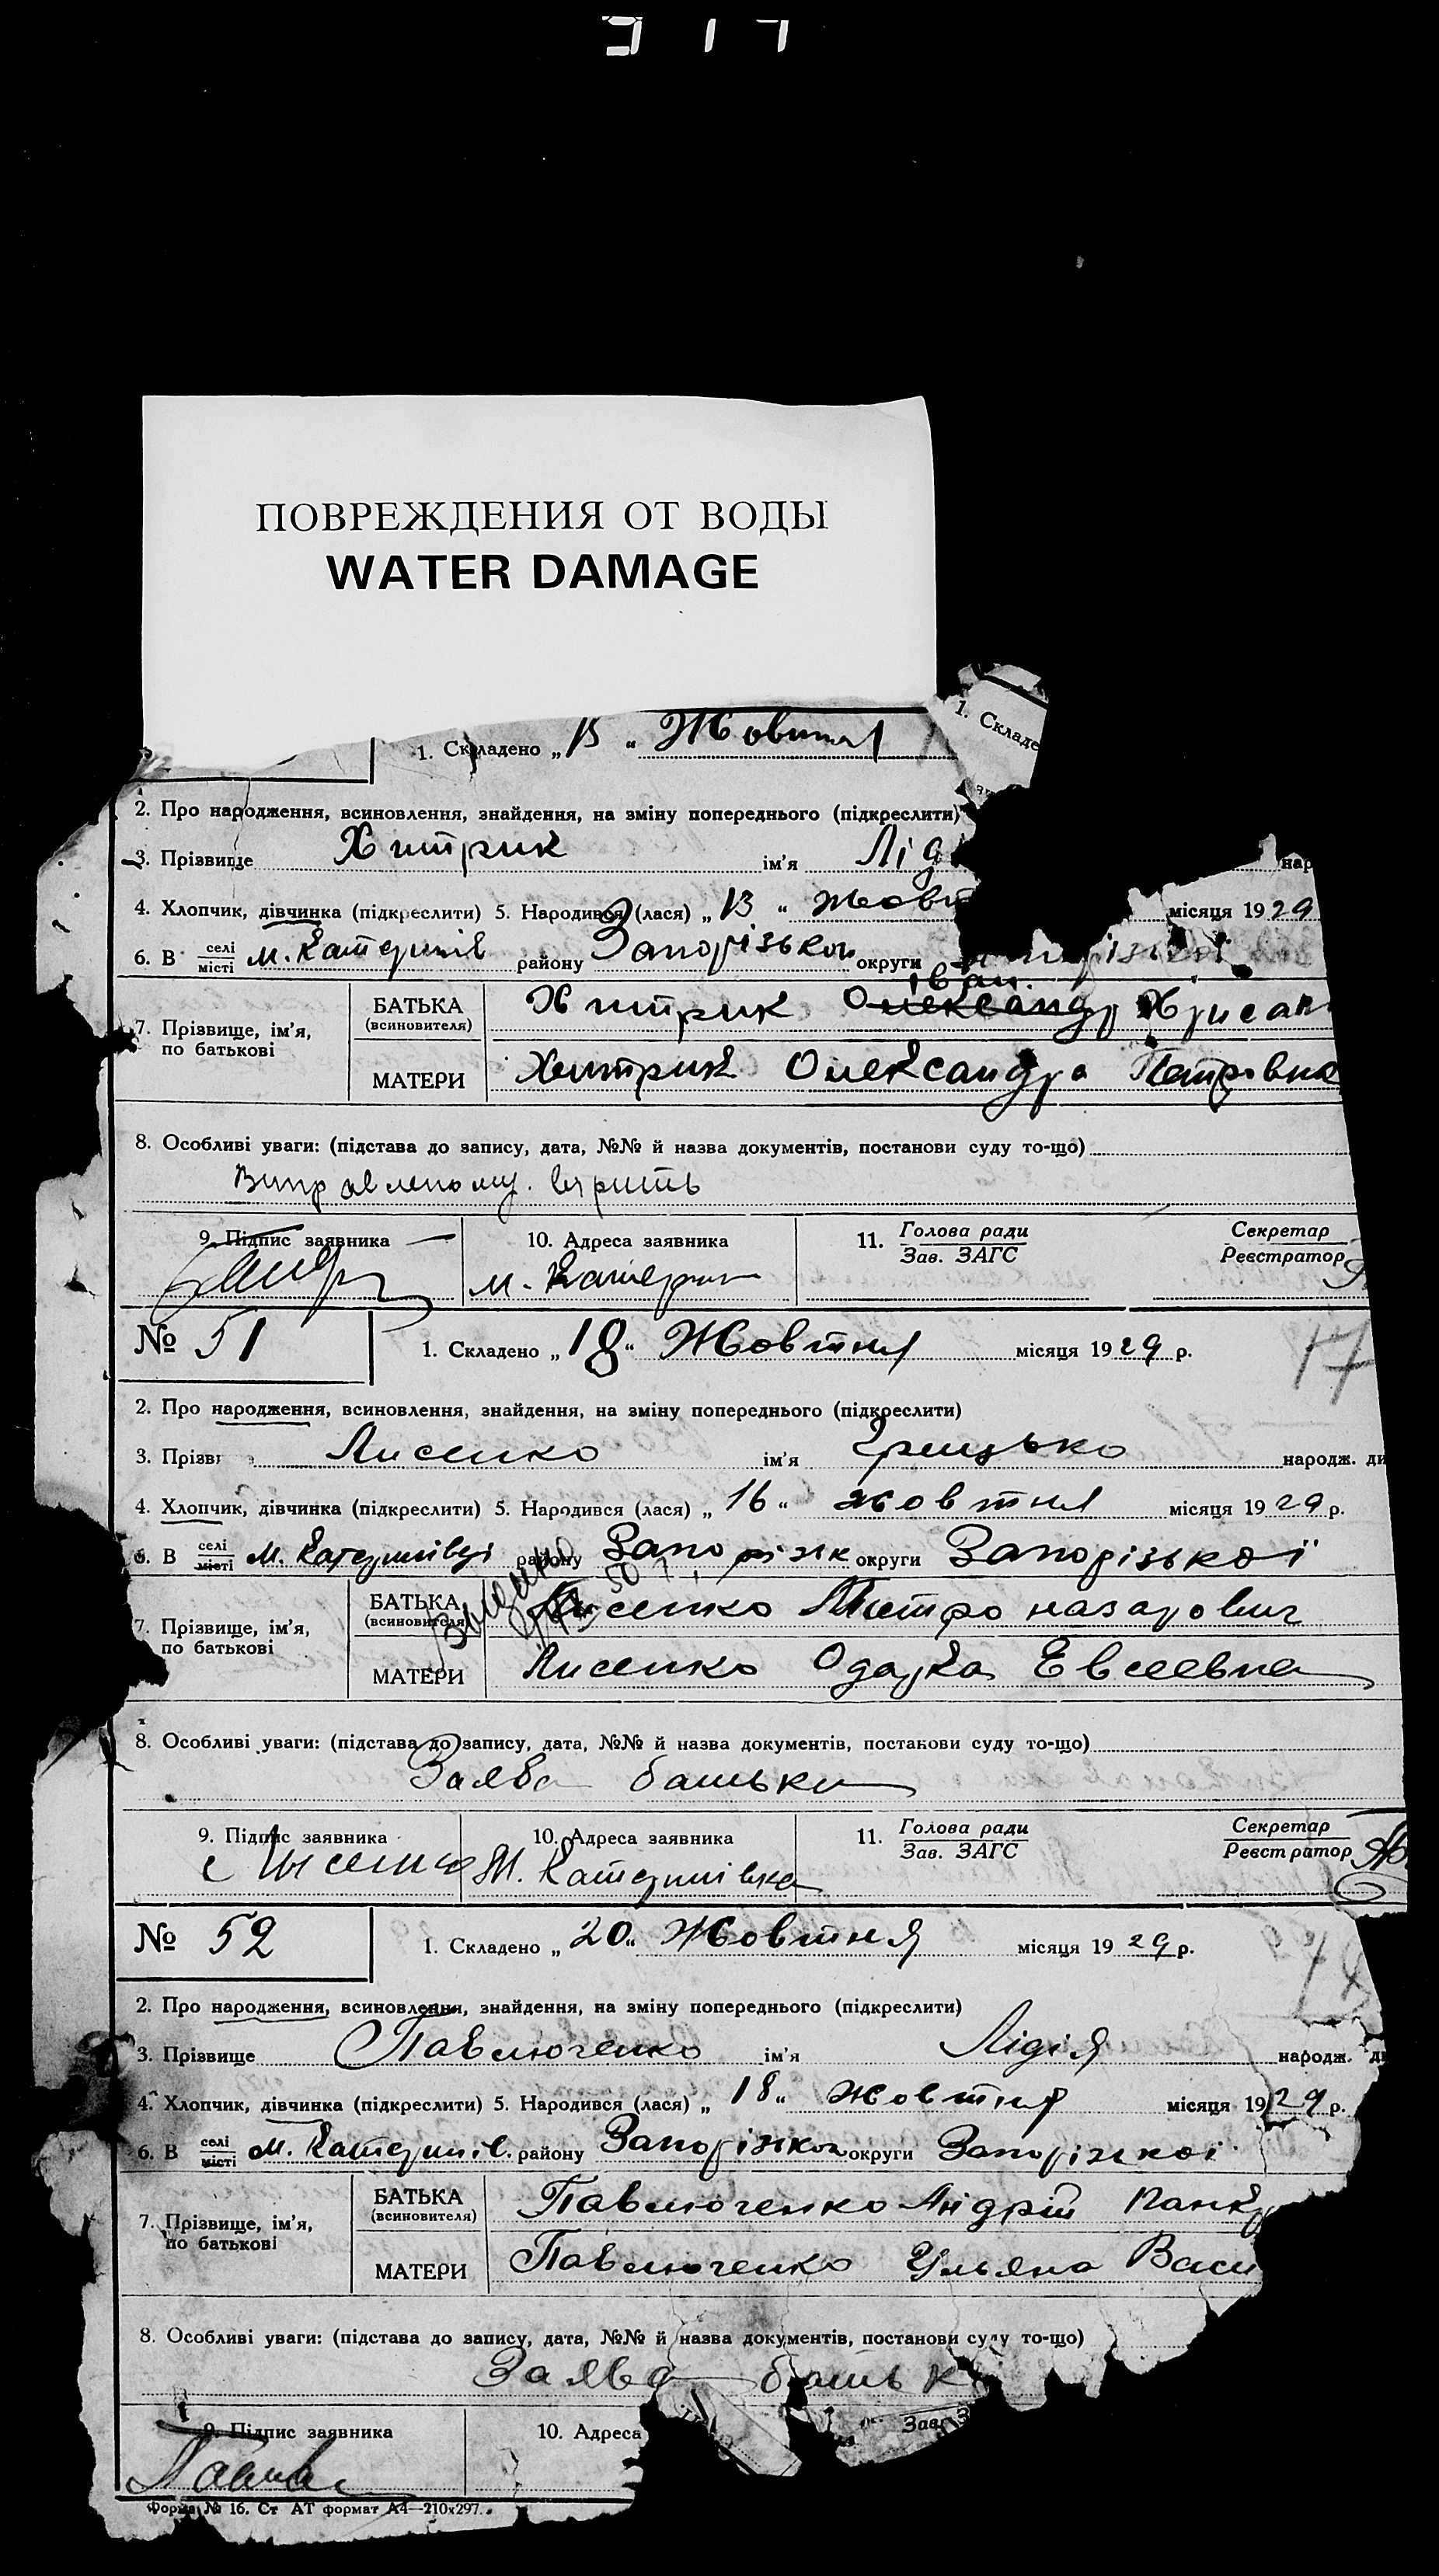 ПОВРЕЖДЕНИЯ ОТ ВОДЫ
WATER DAMAGE
1. Складе
1. Складено „ 13 “ Жовтня
2. Про народження, всиновлення, знайдення, на зміну попереднього (підкреслити)
3. Прізвище Хитрик ім'я Лід нар
4. Хлопчик, дівчинка (підкреслити) 5. Народився (лася) „ 13 “ жовт місяця 1929
6. В селі місті м. Катеринів району Запорізьког округи
Іван.
7. Прізвище, ім'я, по батькові БАТЬКА (всиновителя) Хитрик Олександр Хрисан
МАТЕРИ Хитрик Олександра Петровна
8. Особливі уваги: (підстава до запису, дата, №№ й назва документів, постанови суду то-що)
Виправленому вірить
9. Підпис заявника 10. Адреса заявника 11. Голова ради Зав. ЗАГС Секретар Реєстратор
м. Катерин
№ 51 1. Складено „ 18 “ Жовтня місяця 1929 р. 17
2. Про народження, всиновлення, знайдення, на зміну попереднього (підкреслити)
3. Прізв Лисенко ім'я Грицько народж. ди
4. Хлопчик, дівчинка (підкреслити) 5. Народився (лася) „ 16 “ жовтня місяця 1929 р.
6. В селі місті м. Катеринівці району Запорізьк округи Запорізької
7. Прізвище, ім'я, по батькові БАТЬКА (всиновителя) Лисенко Петро назарович
МАТЕРИ Лисенко Одарка Евсеевна
8. Особливі уваги: (підстава до запису, дата, №№ й назва документів, постанови суду то-що)
Заява батька
9. Підпис заявника 10. Адреса заявника 11. Голова ради Зав. ЗАГС Секретар Реєстратор
Лисенко М. Катеринівка
№ 52 1. Складено „ 20 “ Жовтня місяця 1929 р.
2. Про народження, всиновлення, знайдення, на зміну попереднього (підкреслити)
3. Прізвище Павлюченко ім'я Лідія народж. ди
4. Хлопчик, дівчинка (підкреслити) 5. Народився (лася) „ 18 “ жовтня місяця 1929 р.
6. В селі місті м. Катеринів. району Запорізьког округи Запорізької
7. Прізвище, ім'я, по батькові БАТЬКА (всиновителя) Павлюченко Андрій Панк
МАТЕРИ Павлюченко Ульяна Васи
8. Особливі уваги: (підстава до запису, дата, №№ й назва документів, постанови суду то-що)
Заява батьк
9. Підпис заявника 10. Адреса Зав. З
Форма № 16. Ст АТ формат А4—210х297.